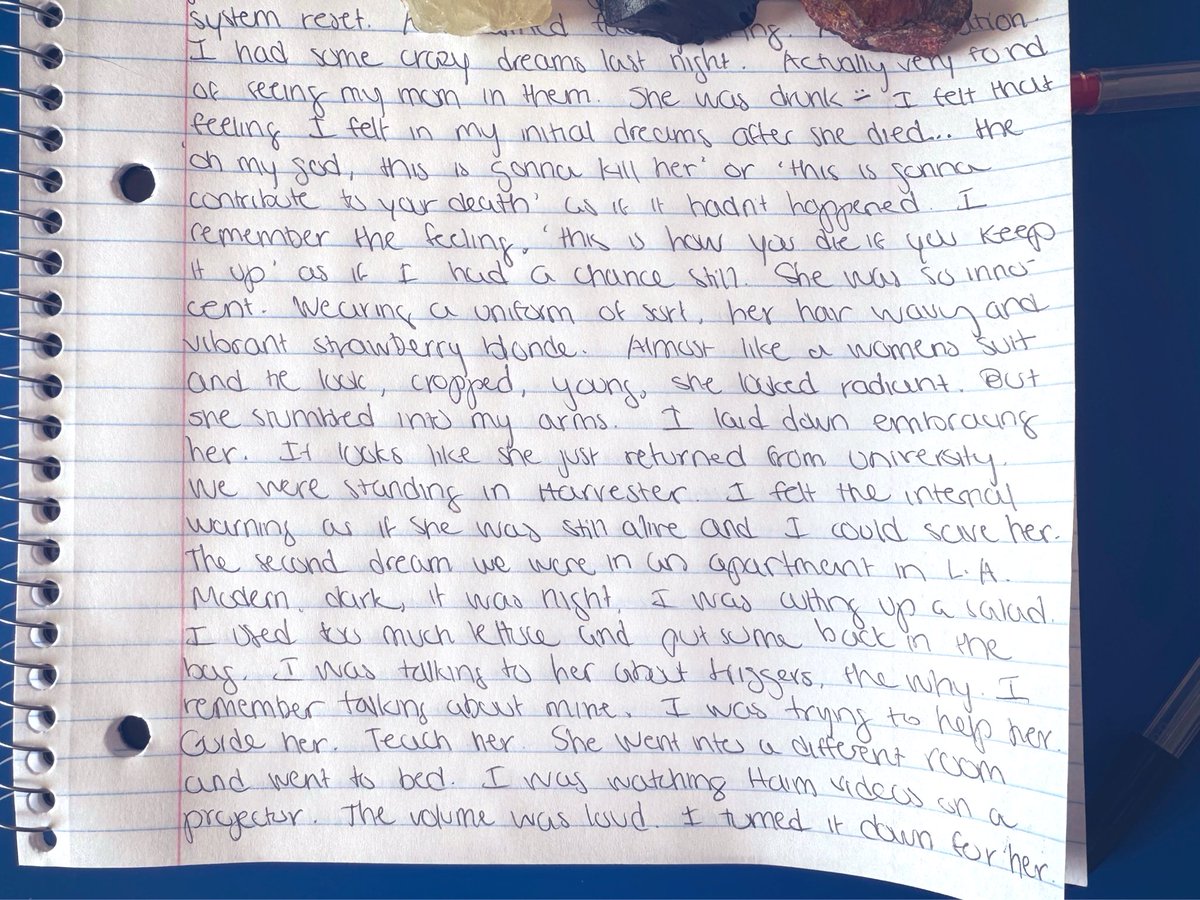 system reset.
I had some crazy dreams last night. Actually very fond
of seeing my mom in them. She was drunk :- I felt that
feeling I felt in my initial dreams after she died... the
'oh my god, this is gonna kill her' or 'this is gonna
contribute to your death' as if it hadnt happened. I
remember the feeling, 'this is how you die if you keep
it up' as if I had a chance still. She was so inno-
cent. Wearing a uniform of sort, her hair wavy and
vibrant strawberry blonde. Almost like a womens suit
and tie look, cropped, young, she looked radiant. But
she stumbled into my arms. I laid down embracing
her. It looks like she just returned from university.
We were standing in Harvester. I felt the internal
warning as if she was still alive and I could save her.
The second dream we were in an apartment in L.A.
Modern, dark, it was night. I was cutting up a salad.
I used too much lettuce and put some back in the
bag. I was talking to her about triggers, the why. I
remember talking about mine. I was trying to help her.
Guide her. Teach her. She went into a different room
and went to bed. I was watching Haim videos on a
projector. The volume was loud. I turned it down for her.